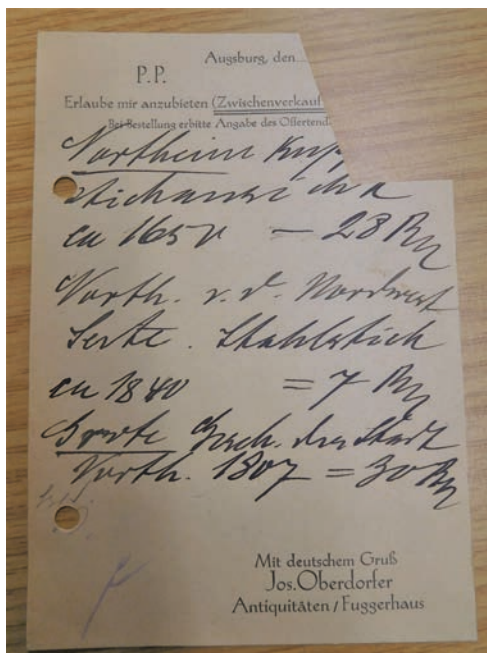 Augsburg, den
P.P.
Erlaube mir anzubieten (Zwischenverkauf
Bei Bestellung erbitte Angabe des Offertend
Northeim Kupf
stichansicht
ca 1650 = 28 Rm
North. v. d. Nordwest
Seite. Stahlstich
ca 1840 = 7 Rm
Grote Gesch. der Stadt
North. 1807 = 30 Rm
Mit deutschem Gruß
Jos. Oberdorfer
Antiquitäten / Fuggerhaus